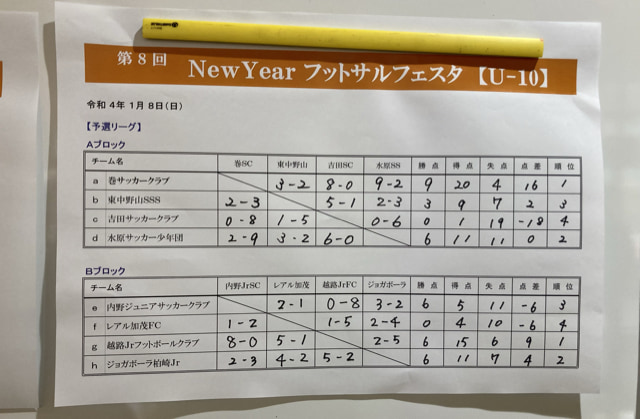 第8回 NewYear フットサルフェスタ 【U-10】
令和 4年 1月 8日(日)
【予選リーグ】
Aブロック
チーム名 巻SC 東中野山 吉田SC 水原SS 勝点 得点 失点 点差 順位
a 巻サッカークラブ 3-2 8-0 9-2 9 20 4 16 1
b 東中野山SSS 2-3 5-1 2-3 3 9 7 2 3
c 吉田サッカークラブ 0-8 1-5 0-6 0 1 19 -18 4
d 水原サッカー少年団 2-9 3-2 6-0 6 11 11 0 2
Bブロック
チーム名 内野JrSC レアル加茂 越路JrFC ジョガボーラ 勝点 得点 失点 点差 順位
e 内野ジュニアサッカークラブ 2-1 0-8 3-2 6 5 11 -6 3
f レアル加茂FC 1-2 1-5 2-4 0 4 10 -6 4
g 越路Jrフットボールクラブ 8-0 5-1 2-5 6 15 6 9 1
h ジョガボーラ柏崎Jr 2-3 4-2 5-2 6 11 7 4 2